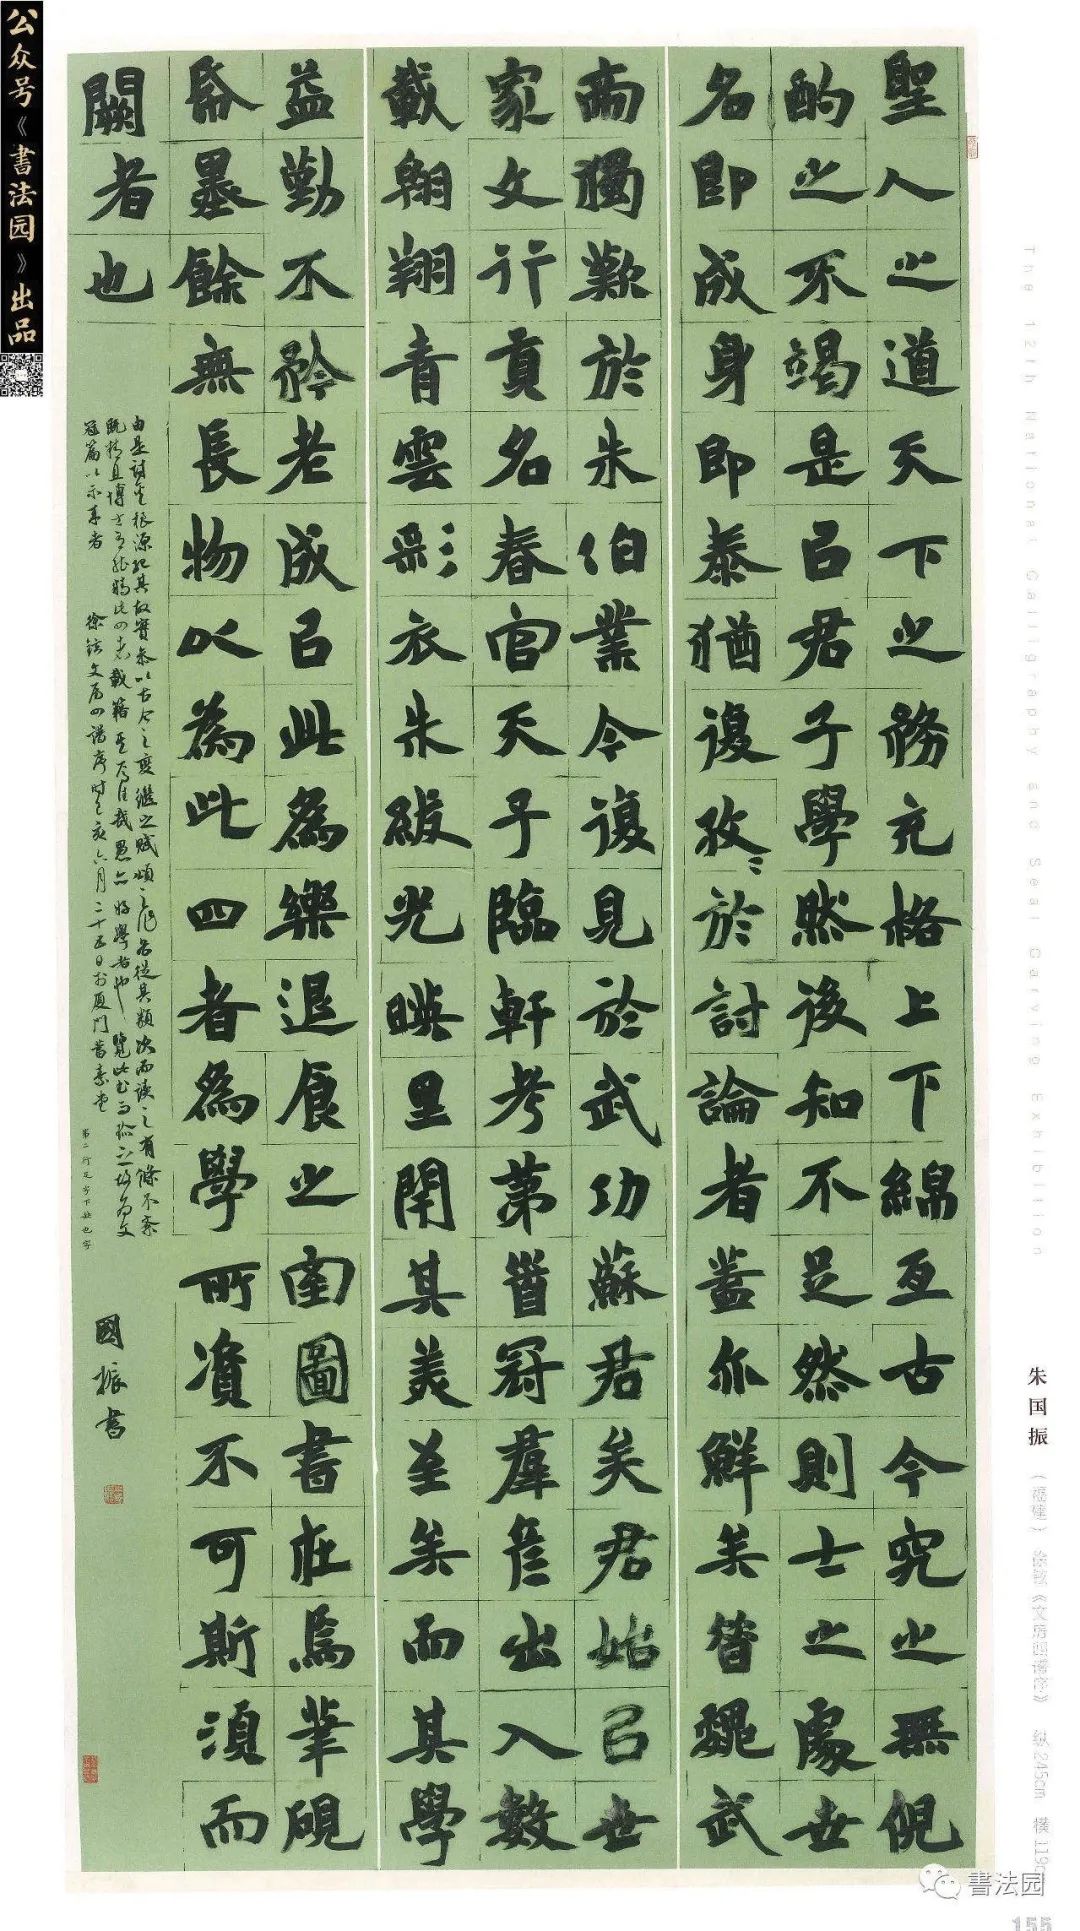 公众号《書法园》出品
聖人之道天下之務充格上下綿亙古今究之無倪
酌之不竭是㠯君子學然後知不足然則士之處世
名即成身即泰猶復孜〻於討論者蓋亦鮮矣昔魏武
帝獨歎於朱伯業今復見於武功蘇君矣君始㠯世
家文行貢名春官天子臨軒考第首冠羣彥出入數
載翱翔青雲彩衣朱紱光映里閈其美至矣而其學
益勤不矜老成㠯此為樂退食之室圖書在焉筆硯
帋墨餘無長物以為此四者為學所資不可斯須而
闕者也
由是討其根源紀其故實參以古今之變繼之賦頌之作各從其類次而譜之有條不紊
既精且博士有能精此四者載籍其焉往哉愚亦好學者也覽此書而珍之故為文
冠篇以示來者 徐鉉文房四譜序時己亥六月二十五日於廈門 素堂
第二行足字下缺也字
國振書
The 12th National Calligraphy and Seal Carving Exhibition
朱国振 (福建) 徐铉《文房四谱序》 纵245cm 横119c
書法园
155